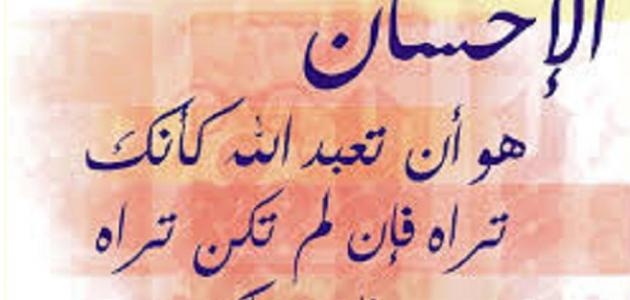 الإحسان
هو أن تعبد الله كأنك
تراه فإن لم تكن تراه